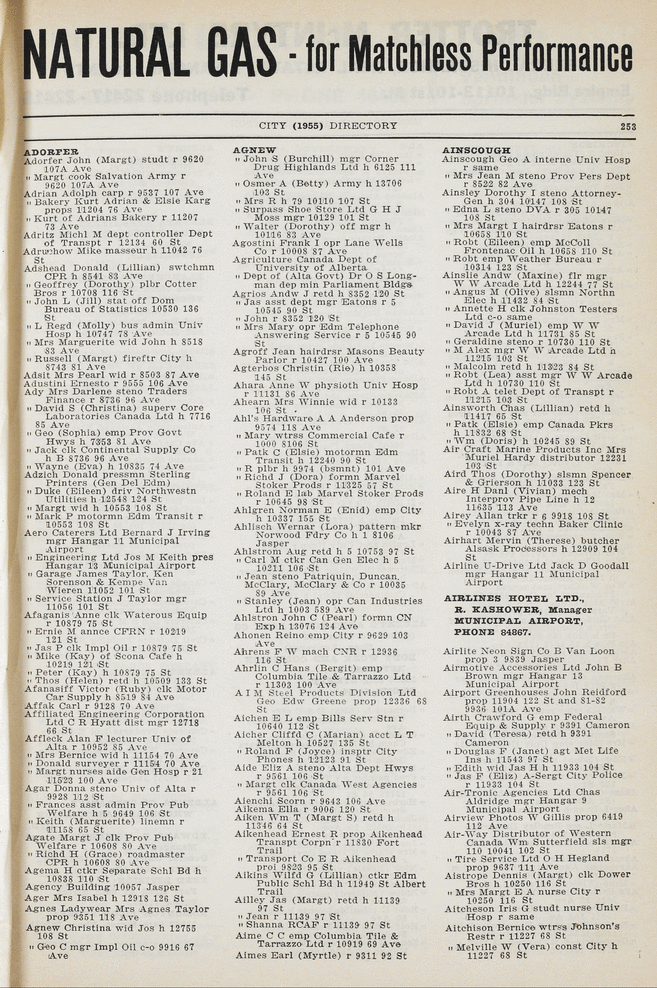 NATURAL GAS - for Matchless Performance
CITY (1955) DIRECTORY 253
ADORFER
Adorfer John (Margt) studt r 9620
107A Ave
" Margt cook Salvation Army r
9620 107A Ave
Adrian Adolph carp r 9537 107 Ave
" Bakery Kurt Adrian & Elsie Karg
props 11204 76 Ave
" Kurt of Adrians Bakery r 11207
73 Ave
Adritz Michl M dept controller Dept
of Transpt r 12134 60 St
Adruchow Mike masseur h 11042 76
St
Adshead Donald (Lillian) swtchmn
CPR h 8541 83 Ave
" Geoffrey (Dorothy) plbr Cotter
Bros r 10708 116 St
" John L (Jill) stat off Dom
Bureau of Statistics 10530 136
St
" L Regd (Molly) bus admin Univ
Hosp h 10747 78 Ave
" Mrs Marguerite wid John h 8518
83 Ave
" Russell (Margt) fireftr City h
8743 81 Ave
Adsit Mrs Pearl wid r 8503 87 Ave
Adustini Ernesto r 9555 106 Ave
Ady Mrs Darlene steno Traders
Finance r 8736 96 Ave
" David S (Christina) superv Core
Laboratories Canada Ltd h 7716
85 Ave
" Geo (Sophia) emp Prov Govt
Hwys h 7353 81 Ave
" Jack clk Continental Supply Co
h B 8736 96 Ave
" Wayne (Eva) h 10825 74 Ave
Adzich Donald pressmn Sterling
Printers (Gen Del Edm)
" Duke (Eileen) driv Northwestn
Utilities h 12548 124 St
" Margt wid h 10553 108 St
" Mark P motormn Edm Transit r
10553 108 St
Aero Caterers Ltd Bernard J Irving
mgr Hangar 11 Municipal
Airport
" Engineering Ltd Jos M Keith pres
Hangar 13 Municipal Airport
" Garage James Taylor, Ken
Sorenson & Kempe Van
Wieren 11052 101 St
" Service Station J Taylor mgr
11056 101 St
Afaganis Anne clk Waterous Equip
r 10879 75 St
" Ernie M annce CFRN r 10219
121 St
" Jas P clk Impl Oil r 10879 75 St
" Mike (Kay) of Scona Cafe h
10219 121 St
" Peter (Kay) h 10879 75 St
" Thos (Helen) retd h 10509 133 St
Afanasiff Victor (Ruby) clk Motor
Car Supply h 8519 84 Ave
Affak Carl r 9128 70 Ave
Affiliated Engineering Corporation
Ltd C R Hyatt dist mgr 12718
66 St
Affleck Alan F lecturer Univ of
Alta r 10952 85 Ave
" Mrs Bernice wid h 11154 70 Ave
" Donald surveyer r 11154 70 Ave
" Margt nurses aide Gen Hosp r 21
11523 100 Ave
Agar Donna steno Univ of Alta r
9928 112 St
" Frances asst admin Prov Pub
Welfare h 5 9649 106 St
" Keith (Marguerite) linemn r
11158 65 St
Agate Margt J clk Prov Pub
Welfare r 10608 80 Ave
" Richd H (Grace) roadmaster
CPR h 10608 80 Ave
Agema H ctkr Separate Schl Bd h
10838 110 St
Agency Building 10057 Jasper
Ager Mrs Isabel h 12918 126 St
Agnes Ladywear Mrs Agnes Taylor
prop 9351 118 Ave
Agnew Christina wid Jos h 12755
108 St
" Geo C mgr Impl Oil c-o 9916 67
Ave
AGNEW
" John S (Burchill) mgr Corner
Drug Highlands Ltd h 6125 111
Ave
" Osmer A (Betty) Army h 13706
103 St
" Mrs R h 79 10110 107 St
" Surpass Shoe Store Ltd G H J
Moss mgr 10129 101 St
" Walter (Dorothy) off mgr h
10116 83 Ave
Agostini Frank I opr Lane Wells
Co r 10008 87 Ave
Agriculture Canada Dept of
University of Alberta
" Dept of (Alta Govt) Dr O S Long-
man dep min Parliament Bldgs
Agrios Andw J retd h 8352 120 St
" Jas asst dept mgr Eatons r 5
10545 90 St
" John r 8352 120 St
" Mrs Mary opr Edm Telephone
Answering Service r 5 10545 90
St
Agroff Jean hairdrsr Masons Beauty
Parlor r 10427 100 Ave
Agterbos Christin (Rie) h 10358
145 St
Ahara Anne W physioth Univ Hosp
r 11131 86 Ave
Ahearn Mrs Winnie wid r 10133
106 St
Ahl's Hardware A A Anderson prop
9574 118 Ave
" Mary wtrss Commercial Cafe r
1000 8106 St
" Patk C (Elsie) motormn Edm
Transit h 12240 90 St
" R plbr h 9974 (bsmnt) 101 Ave
" Richd J (Dora) formn Marvel
Stoker Prods r 11325 57 St
" Roland E lab Marvel Stoker Prods
r 10645 98 St
Ahlgren Norman E (Enid) emp City
h 10337 155 St
Ahlisch Wernar (Lora) pattern mkr
Norwood Fdry Co h 1 8106
Jasper
Ahlstrom Aug retd h 5 10753 97 St
" Carl M ctkr Can Gen Elec h 5
10211 106 St
" Jean steno Patriquin, Duncan,
McClary, McClary & Co r 10035
89 Ave
" Stanley (Jean) opr Can Industries
Ltd h 1003 589 Ave
Ahlstron John C (Pearl) formn CN
Exp h 13076 124 Ave
Ahonen Reino emp City r 9629 103
Ave
Ahrens F W mach CNR r 12936
116 St
Ahrlin C Hans (Bergit) emp
Columbia Tile & Tarrazzo Ltd
r 11303 100 Ave
A I M Steel Products Division Ltd
Geo Edw Greene prop 12336 68
St
Aichen E L emp Bills Serv Stn r
10640 112 St
Aicher Cliffd C (Marian) acct L T
Melton h 10527 135 St
" Roland F (Joyce) insptr City
Phones h 12123 91 St
Aide Eliz A steno Alta Dept Hwys
r 9561 106 St
" Margt clk Canada West Agencies
r 9561 106 St
Aienchi Scorn r 9643 106 Ave
Aikema Ella r 9006 120 St
Aiken Wm T (Margt S) retd h
11346 64 St
Aikenhead Ernest R prop Aikenhead
Transpt Corpn'r 11830 Fort
Trail
" Transport Co E R Aikenhead
prop 9823 95 St
Aikins Wilfd G (Lillian) ctkr Edm
Public Schl Bd h 11949 St Albert
Trail
Ailley Jas (Margt) retd h 11139
97 St
" Jean r 11139 97 St
" Shanna RCAF r 11139 97 St
Aime C C emp Columbia Tile &
Tarrazzo Ltd r 10919 69 Ave
Aimes Earl (Myrtle) r 9311 92 St
AINSCOUGH
Ainscough Geo A interne Univ Hosp
r same
" Mrs Jean M steno Prov Pers Dept
r 8522 82 Ave
Ainsley Dorothy I steno Attorney-
Gen h 304 10147 108 St
" Edna L steno DVA r 305 10147
108 St
" Mrs Margt I hairdrsr Eatons r
10658 110 St
" Robt (Eileen) emp McColl
Frontenac Oil h 10658 110 St
" Robt emp Weather Bureau r
10314 123 St
Ainslie Andw (Maxine) flr mgr
W W Arcade Ltd h 12244 77 St
" Angus M (Olive) slsmn Northn
Elec h 11432 84 St
" Annette H clk Johnston Testers
Ltd c-o same
" David J (Muriel) emp W W
Arcade Ltd h 11731 85 St
" Geraldine steno r 10730 110 St
" M Alex mgr W W Arcade Ltd h
11215 103 St
" Malcolm retd h 11323 84 St
" Robt (Lea) asst mgr W W Arcade
Ltd h 10730 110 St
" Robt A telet Dept of Transpt r
11215 103 St
Ainsworth Chas (Lillian) retd h
11417 65 St
" Patk (Elsie) emp Canada Pkrs
h 11832 68 St
" Wm (Doris) h 10245 89 St
Air Craft Marine Products Inc Mrs
Muriel Hardy distributor 12231
103 St
Aird Thos (Dorothy) slsmn Spencer
& Grierson h 11033 123 St
Aire H Danl (Vivian) mech
Interprov Pipe Line h 12
11635 113 Ave
Airey Allan trkr r 6 9918 108 St
" Evelyn x-ray techn Baker Clinic
r 10043 87 Ave
Airhart Mervin (Therese) butcher
Alsask Processors h 12909 104
St
Airline U-Drive Ltd Jack D Goodall
mgr Hangar 11 Municipal
Airport
AIRLINES HOTEL LTD.,
R. KASHOWER, Manager
MUNICIPAL AIRPORT,
PHONE 84867.
Airlite Neon Sign Co B Van Loon
prop 3 9839 Jasper
Airmotive Accessories Ltd John B
Brown mgr Hangar 13
Municipal Airport
Airport Greenhouses John Reidford
prop 11904 122 St and 81-82
9936 101A Ave
Airth Crawford G emp Federal
Equip & Supply r 9391 Cameron
" David (Teresa) retd h 9391
Cameron
" Douglas F (Janet) agt Met Life
Ins h 11543 97 St
" Edith wid Jas H h 11933 104 St
" Jas F (Eliz) A-Sergt City Police
r 11933 104 St
Air-Tronic Agencies Ltd Chas
Aldridge mgr Hangar 9
Municipal Airport
Airview Photos W Gillis prop 6419
112 Ave
Air-Way Distributor of Western
Canada Wm Sutterfield sls mgr
110 10041 102 St
" Tire Service Ltd O H Hegland
prop 9637 111 Ave
Aistrope Dennis (Margt) clk Dower
Bros h 10250 116 St
" Mrs Margt E A nurse City r
10250 116 St
Aitcheson Iris G studt nurse Univ
Hosp r same
Aitchison Bernice wtrss Johnson's
Restr r 11227 68 St
" Melville W (Vera) const City h
11227 68 St